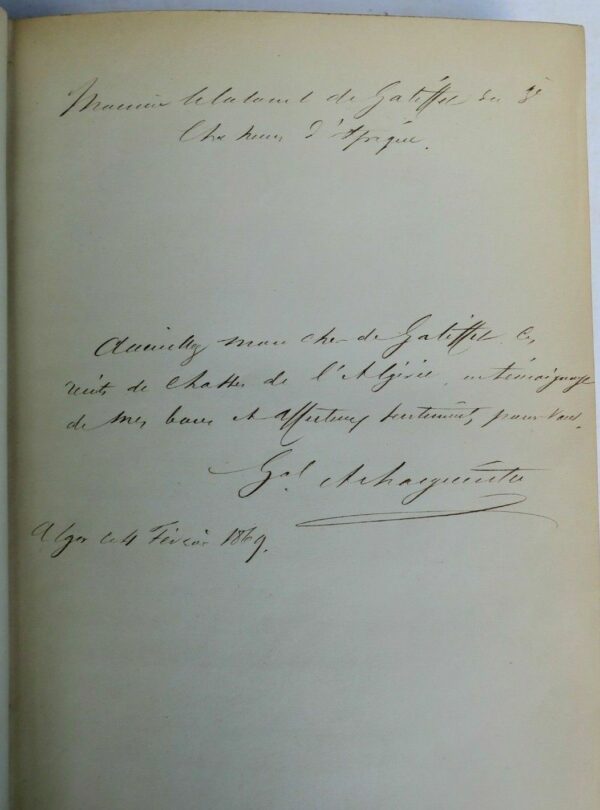 Monsieur le Colonel de Galiffet du 3e
Chasseurs d'Afrique.
Accueillez mon cher de Galiffet ces
récits de chasses de l'Algérie, en témoignage
de mes bons et affectueux sentiments pour vous.
Gal A Margueritte
Alger le 4 Février 1869.